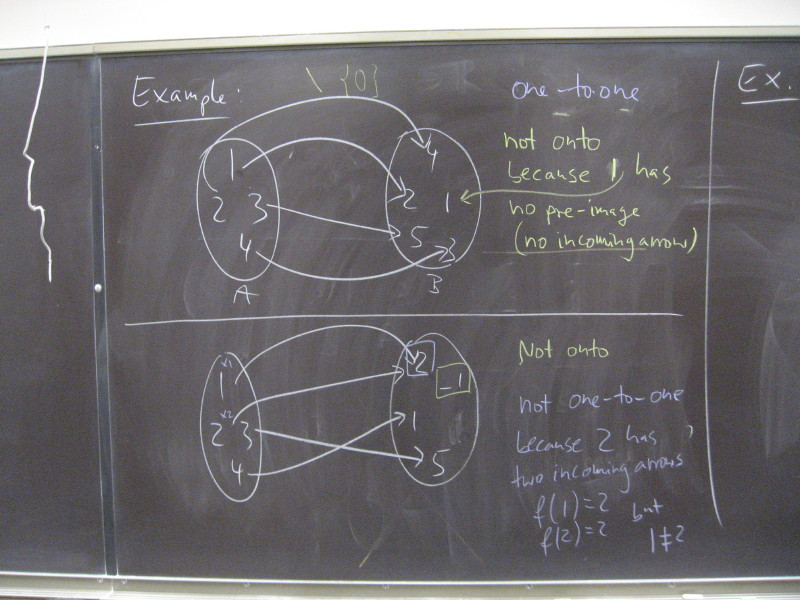 Example:
\ {0}
one-to-one
Ex.
1
2 3
4
A
4
2 1
5
3
B
not onto
because 1 has
no pre-image
(no incoming arrow)
x1
1
x2
2 3
4
2
-1
1
5
Not onto
not one-to-one
because 2 has
two incoming arrows
f(1)=2 but
f(2)=2 1≠2